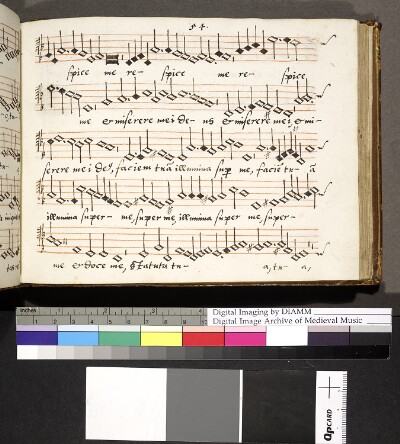 54.
spice me re- spice me re- spice
me et miserere mei de- us et miserere mei, et mi-
serere mei de9, faciem tuā illumina sup me, faciē tu- ā
illumina super- me, super me, illumina super me, super-
me et doce me, Statuta tu- a, tu- a,
inches 1 2 3 4
Digital Imaging by DIAMM
Digital Image Archive of Medieval Music
QPCARD